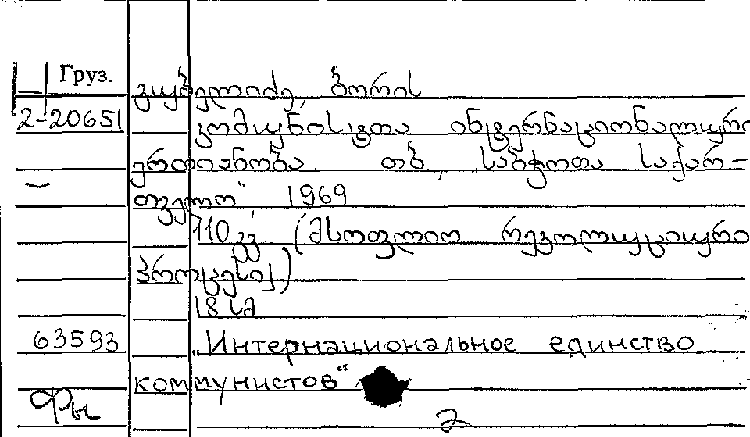 Груз.
გიუბელიძე, ბორის
2-20651
კომუნისტთა ინტერნაციონალური
ერთიანობა თბ., „საბჭოთა საქარ-
თველო“, 1969
110 გვ. (მსოფლიო რევოლუციური
პროცესი)
18 სმ
63593
„Интернациональное единство
коммунистов“
2